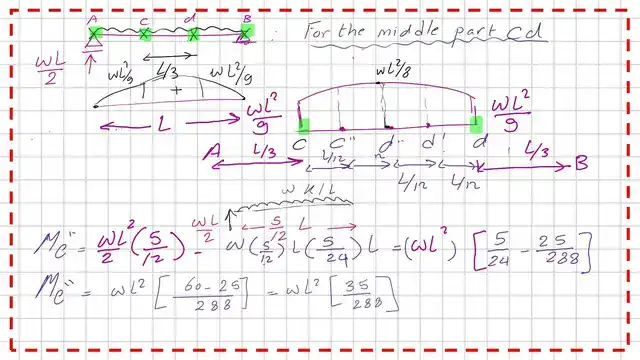 A C d B
For the middle part Cd
wL/2
wL²/9 L/3 wL²/9
+
L
wL²/8
wL²/9 wL²/9
C C'' d'' d' d
A L/3 L/12 L/12 L/12 L/3 B
w K/L
wL/2 5/12 L
Mc'' = wL²/2 (5/12) - w(5/12)L(5/24)L = (wL²) [5/24 - 25/288]
Mc'' = wL² [60-25/288] = wL² [35/288]